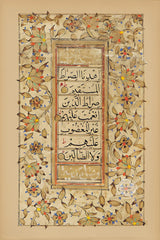 اهدنا الصراط
المستقيم
صراط الذين
انعمت عليهم
غير المغضوب
عليهم
ولا الضالين